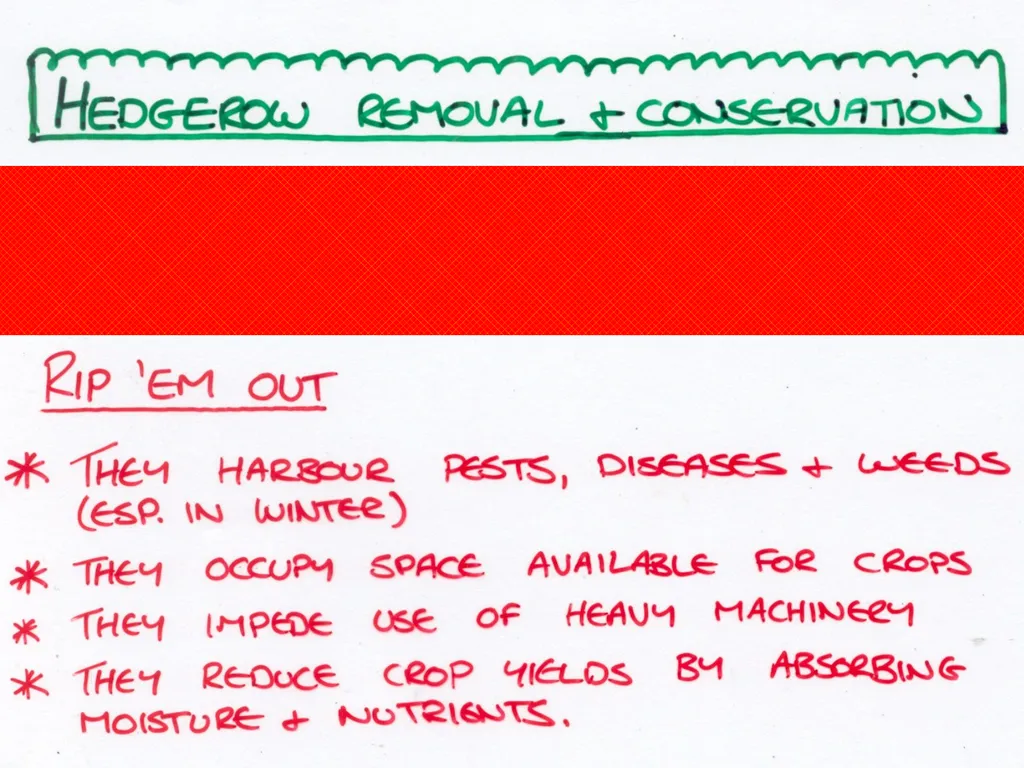 HEDGEROW REMOVAL & CONSERVATION
RIP 'EM OUT
* THEY HARBOUR PESTS, DISEASES & WEEDS
(ESP. IN WINTER)
* THEY OCCUPY SPACE AVAILABLE FOR CROPS
* THEY IMPEDE USE OF HEAVY MACHINERY
* THEY REDUCE CROP YIELDS BY ABSORBING
MOISTURE & NUTRIENTS.